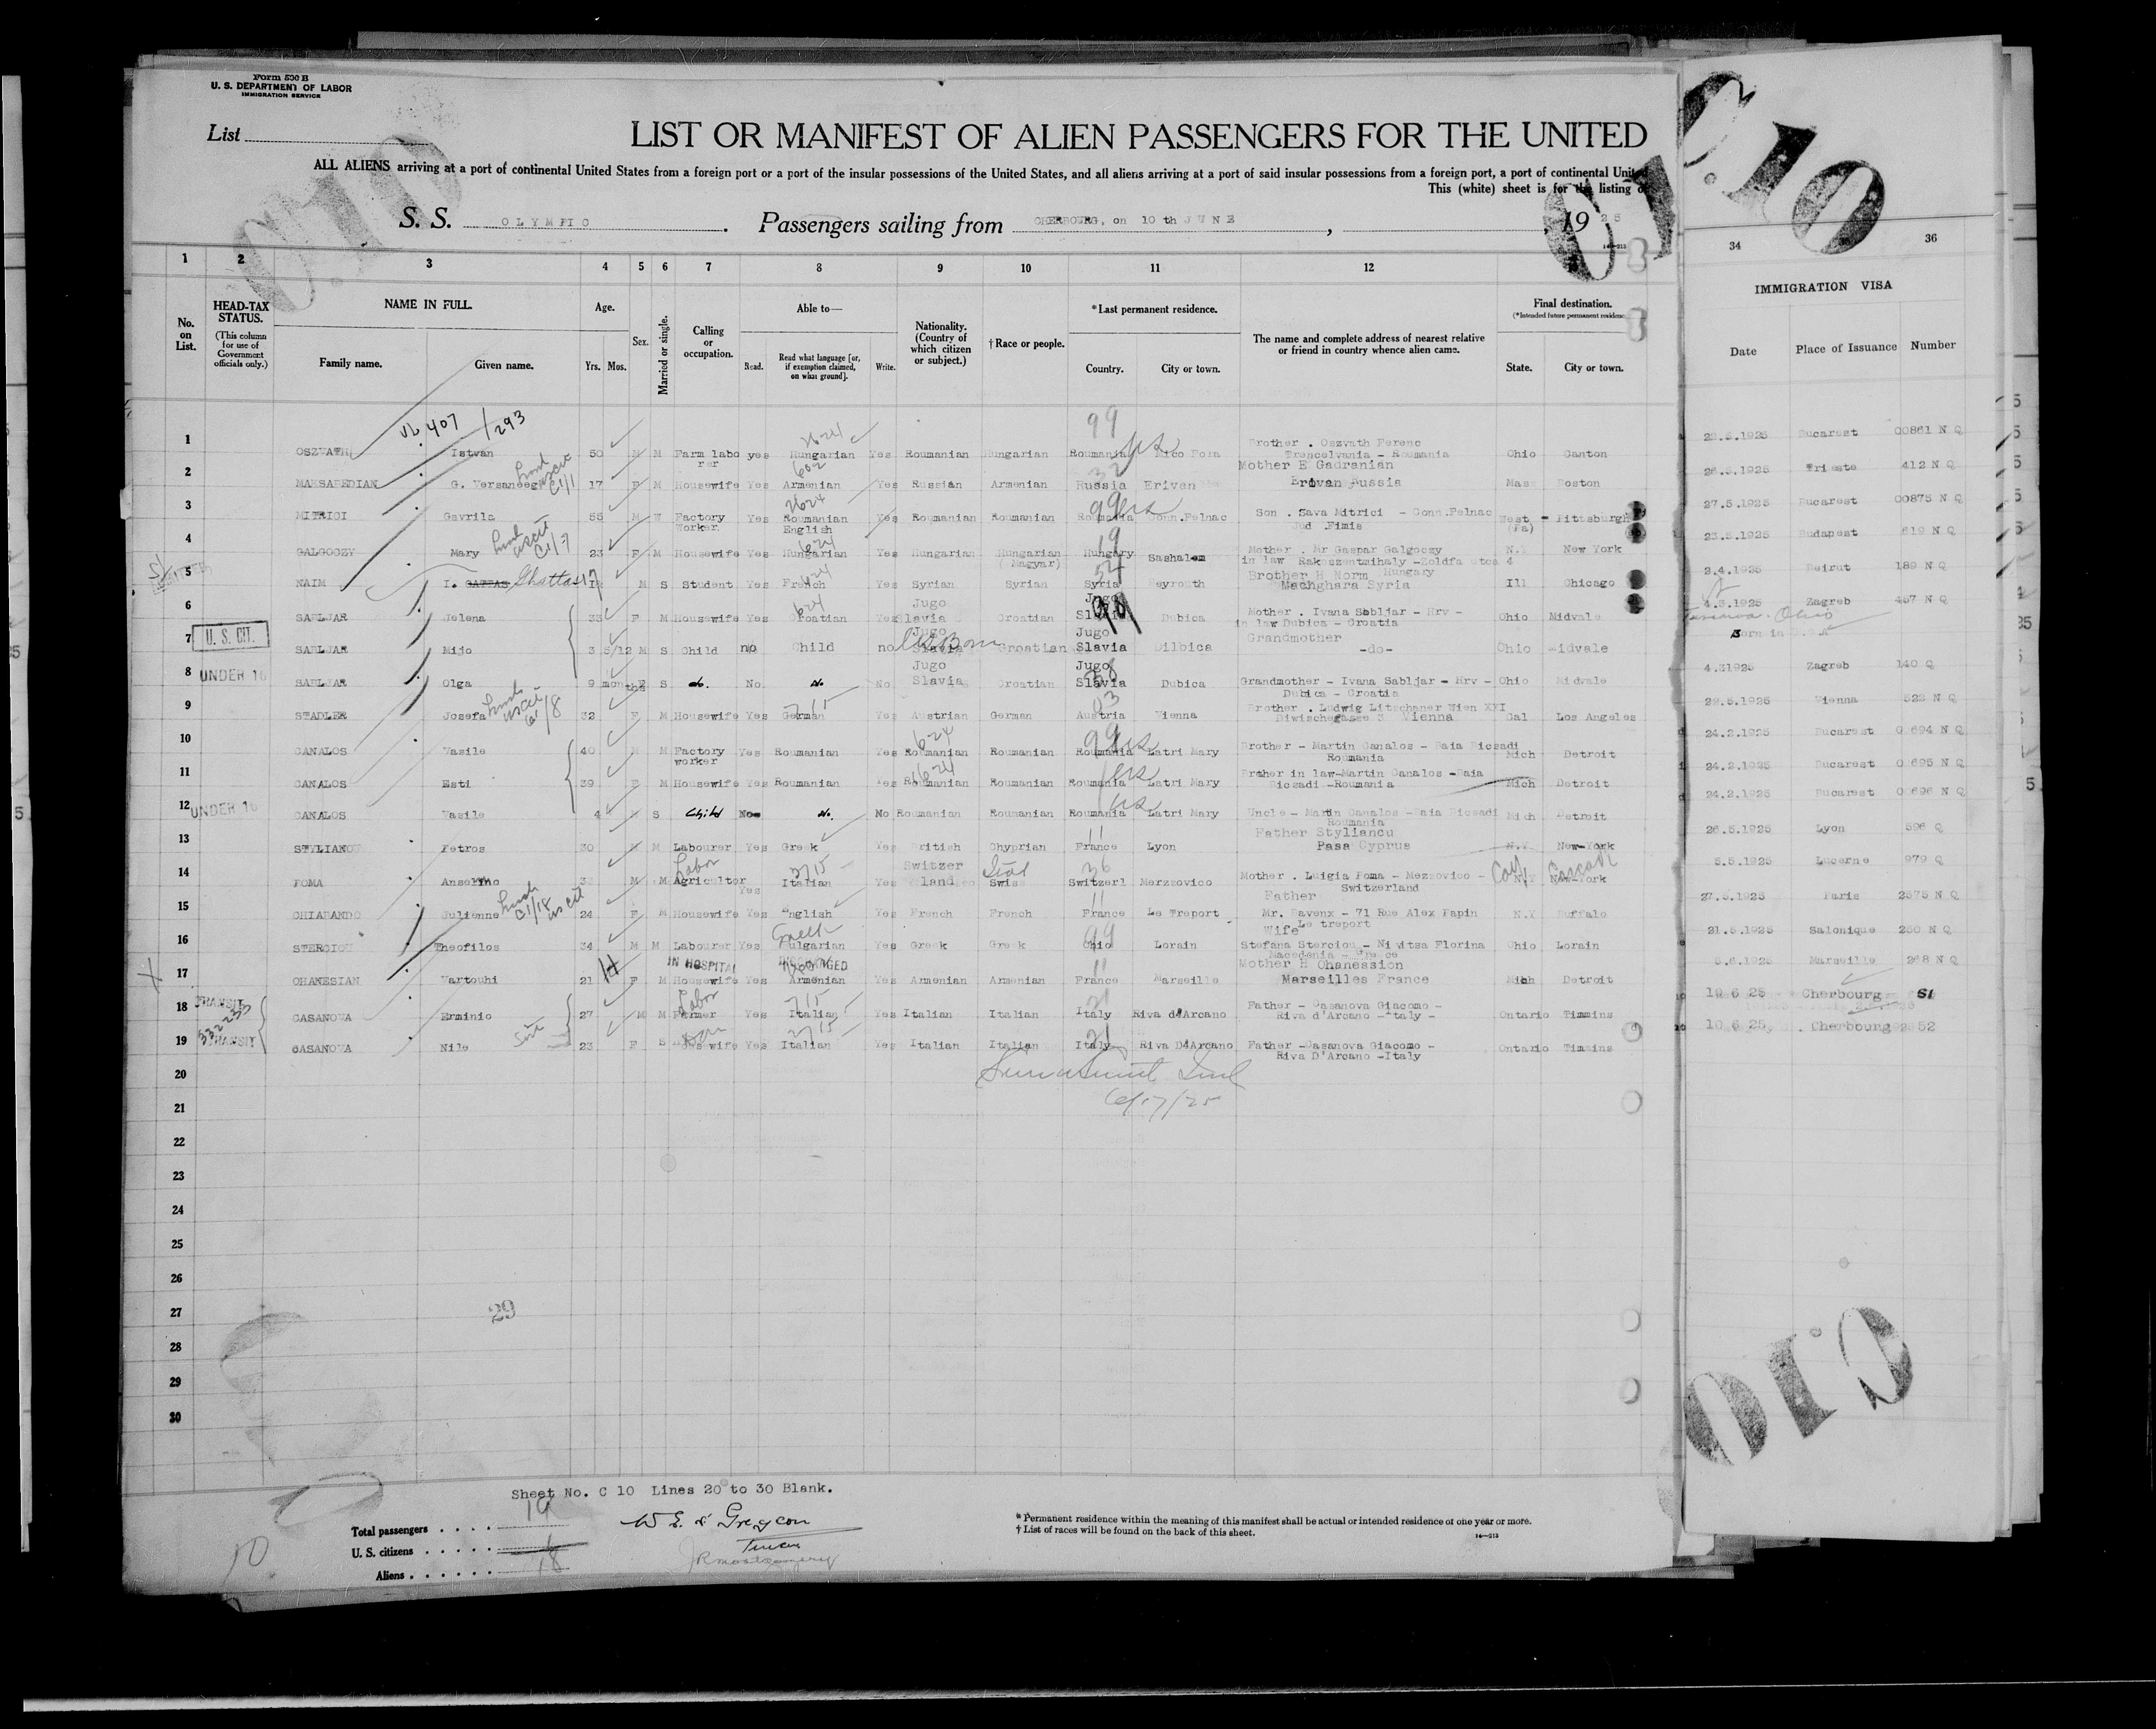 Form 500 B
U. S. DEPARTMENT OF LABOR
IMMIGRATION SERVICE
List
LIST OR MANIFEST OF ALIEN PASSENGERS FOR THE UNITED
ALL ALIENS arriving at a port of continental United States from a foreign port or a port of the insular possessions of the United States, and all aliens arriving at a port of said insular possessions from a foreign port, a port of continental
This (white) sheet is for the listing
S. S. OLYMPIC. Passengers sailing from CHERBOURG, on 10 th JUNE, 1925
1 2 3 4 5 6 7 8 9 10 11 12 34 36
No. on List.
HEAD-TAX STATUS.
(This column for use of Government officials only.)
NAME IN FULL.
Family name. Given name.
Age.
Yrs. Mos.
Sex.
Married or single.
Calling or occupation.
Able to—
Read. Read what language [or, if exemption claimed, on what ground]. Write.
Nationality. (Country of which citizen or subject.)
† Race or people.
*Last permanent residence.
Country. City or town.
The name and complete address of nearest relative or friend in country whence alien came.
Final destination.
(*Intended future permanent residence
State. City or town.
IMMIGRATION VISA
Date Place of Issuance Number
407 / 293
1 OSZVATH Istvan 50 M M Farm labo rer yes Hungarian Yes Roumanian Hungarian Roumania Brother . Oszvath Ferenc Ohio Canton 22.5.1925 Bucarest 00861 N Q
2 MAKSAREDIAN G. Versaneeg 17 F M Housewife Yes Armenian Yes Russian Armenian Russia Erivan Mother E Gadranian Erivan Russia Mas Boston 26.5.1925 Trieste 412 N Q
3 MITRICI Gavrila 55 M W Factory Worker Yes Roumanian English Yes Roumanian Roumanian Roumania Conn.Felnac Son . Sava Mitrici - Conn.Felnac Jud .Fimis West - Pittsburgh (Pa) 27.5.1925 Bucarest 00875 N Q
4 GALGOCZY Mary 23 F M Housewife Yes Hungarian Yes Hungarian Hungarian (Magyar) Hungary Sashalom Mother . Mr Gaspar Galgoczy in law Rakoszentmihaly -Zoldfa utca 4 Hungary N.Y New York 23.5.1925 Budapest 619 N Q
5 NAIM I. GATTAS Ghattas 17 M S Student Yes French Yes Syrian Syrian Syria Beyrouth Brother H Norm Machghara Syria Ill Chicago 2.4.1925 Beirut 189 N Q
6 SABLJAR Jelena 33 F M Housewife Yes Croatian Yes Jugo Slavia Croatian Jugo Slavia Dubica Mother . Ivana Sabljar - Hrv - in law Dubica - Croatia Ohio Midvale 4.3.1925 Zagreb 457 N Q
7 U. S. CIT. SABLJAR Mijo 3 5/12 M S Child no Child no Jugo Slavia US Born Croatian Jugo Slavia Dilbica Grandmother -do- Ohio Midvale Born in
8 UNDER 16 SABLJAR Olga 9 months F S do. No. No Jugo Slavia Croatian Jugo Slavia Dubica Grandmother - Ivana Sabljar - Hrv - Dubica - Croatia Ohio Midvale 4.31925 Zagreb 140 Q
9 STADLER Josefa 32 F M Housewife Yes German Yes Austrian German Austria Vienna Brother . Ludwig Litschaner Wien XVI Diwischgasse 3 Vienna Cal Los Angeles 29.5.1925 Vienna 522 N Q
10 CANALOS Vasile 40 M M Factory worker Yes Roumanian Yes Roumanian Roumanian Roumania Latri Mary Brother - Martin Canalos - Baia Bicsadi Roumania Mich Detroit 24.2.1925 Bucarest 0 694 N Q
11 CANALOS Esti 39 F M Housewife Yes Roumanian Yes Roumanian Roumanian Roumania Latri Mary Brother in law-Martin Canalos -Baia Bicsadi -Roumania Mich Detroit 24.2.1925 Bucarest 0 695 N Q
12 UNDER 16 CANALOS Vasile 4 M S Child No No Roumanian Roumanian Roumania Latri Mary Uncle - Martin Canalos - Baia Bicsadi Roumania Mich Detroit 24.2.1925 Bucarest 0 696 N Q
13 STYLIANOS Petros 30 M M Labourer Yes Greek Yes British Chyprian France Lyon Father Styliancu Pasa Cyprus N.Y New-York 26.5.1925 Lyon 596 Q
14 POMA Anselmo 33 M M Agricultor Labor Yes Italian Yes Switzer land Swiss Switzerl Mezzovico Mother . Luigia Poma - Mezzovico - Switzerland N.Y New-York 5.5.1925 Lucerne 979 Q
15 CHIABANDO Julienne 24 F M Housewife Yes English Yes French French France Le Treport Father Mr. Ravenx - 71 Rue Alex Papin Le treport N.Y Buffalo 27.5.1925 Paris 2575 N Q
16 STERGIOU Theofilos 34 M M Labourer Yes Bulgarian Greek Yes Greek Greek Ohio Lorain Wife Stefana Sterciou - Nivitsa Florina Macedonia - Greece Ohio Lorain 21.5.1925 Salonique 250 N Q
17 OHANESIAN Vartouhi 21 F M IN HOSPITAL DISCHARGED Housewife Yes Armenian Yes Armenian Armenian France Marseille Mother H Ohanession Marseilles France Mich Detroit 5.6.1925 Marseille 268 N Q
18 TRANSIT CASANOVA Erminio 27 M M Farmer Labor Yes Italian Yes Italian Italian Italy Riva d'Arcano Father - Casanova Giacomo - Riva d'Arcano -Italy - Ontario Timmins 10 6 25 Cherbourg 51
19 TRANSIT CASANOVA Nile 23 F S Housewife Yes Italian Yes Italian Italian Italy Riva D'Arcano Father -Casanova Giacomo - Riva D'Arcano -Italy Ontario Timmins 10.6 25, Cherbourg 52
20
6/17/25
21
22
23
24
25
26
27
29
28
29
30
Sheet No. C 10 Lines 20 to 30 Blank.
Total passengers . . . . 19
U. S. citizens . . . . .
Aliens . . . . . . 18
10
JR Montgomery
* Permanent residence within the meaning of this manifest shall be actual or intended residence of one year or more.
† List of races will be found on the back of this sheet.
14—213
C.10
010